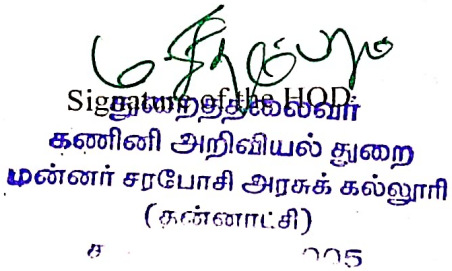 Signature of the HOD
துறைத்தலைவர்
கணினி அறிவியல் துறை
மன்னர் சரபோசி அரசுக் கல்லூரி
(தன்னாட்சி)
005